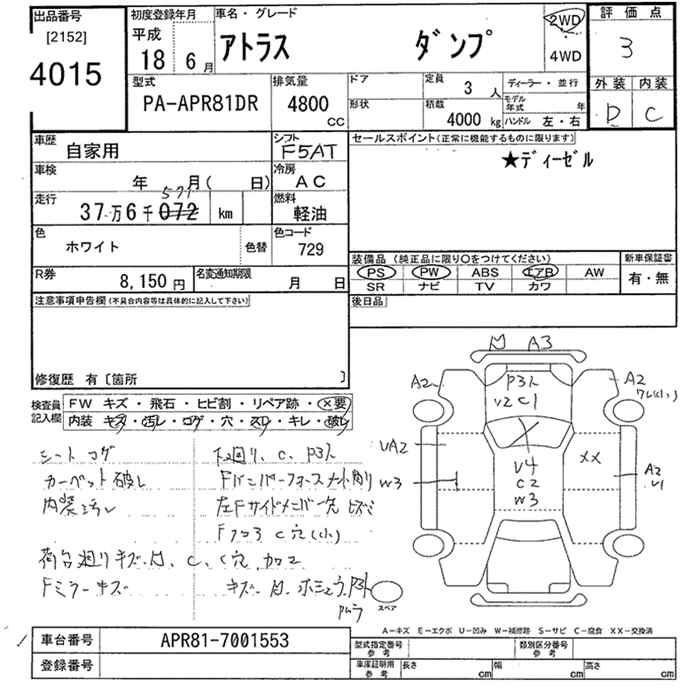 出品番号
[2152]
4015
初度登録年月
平成
18 年 6 月
車名・グレード
アトラス ダンプ
2WD
4WD
評価点
3
外装 内装
D C
型式
PA-APR81DR
排気量
4800 cc
ドア
形状
定員
3 人
積載
4000 kg
ディーラー・並行
モデル年式 年
ハンドル 左・右
車歴
自家用
シフト
F5AT
車検
年 月( 日)
冷房
AC
走行
37万6千072 km
577
燃料
軽油
色
ホワイト
色替
色コード
729
R券
8,150 円
名変通知期限
月 日
セールスポイント(正常に機能するものに限ります)
★ディーゼル
装備品(純正品に限り○をつけてください)
PS PW ABS エアB AW
SR ナビ TV カワ
新車保証書
有・無
後日品
注意事項申告欄(不具合内容等は具体的に記入して下さい)
修復歴 有〔箇所 〕
検査員記入欄
FW キズ・飛石・ヒビ割・リペア跡・×要
内装 キズ・汚レ・コゲ・穴・スレ・キレ・破レ
シート コゲ
カーペット破レ
内装汚レ
下廻り、C、P3ト
C穴(小)
荷台廻りキズ、凹、C、C穴、加工
Fミラーキズ
A3
A2
A2
P3ト
V2 C1
UA2
W3
V4
C2
W3
XX
A2
U1
スペア
A-キズ E-エクボ U-凹み W-補修跡 S-サビ C-腐食 XX-交換済
車台番号
APR81-7001553
登録番号
型式指定番号 参考
類別区分番号 参考
車庫証明用 参考
長さ cm
幅 cm
高さ cm